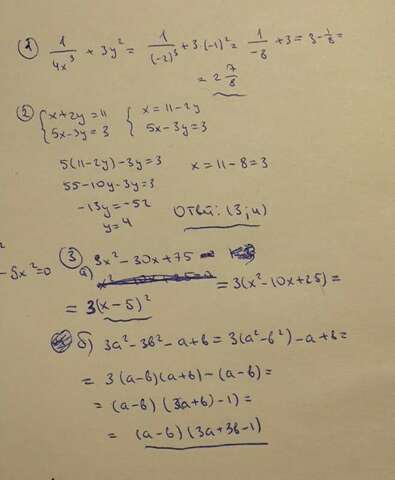 ① 1/4x³ + 3y² = 1/(-2)³ + 3·(-1)² = 1/-8 + 3 = 3 - 1/8 =
= 2 7/8
② { x+2y=11 { x=11-2y
5x-3y=3 5x-3y=3
5(11-2y)-3y=3 x=11-8=3
55-10y-3y=3
-13y=-52 Ответ: (3;4)
y=4
-5x²=0
③ а) 3x²-30x+75 = 3(x²-10x+25) =
= 3(x-5)²
б) 3a²-3b²-a+b = 3(a²-b²)-a+b =
= 3(a-b)(a+b)-(a-b) =
= (a-b)(3(a+b)-1) =
= (a-b)(3a+3b-1)